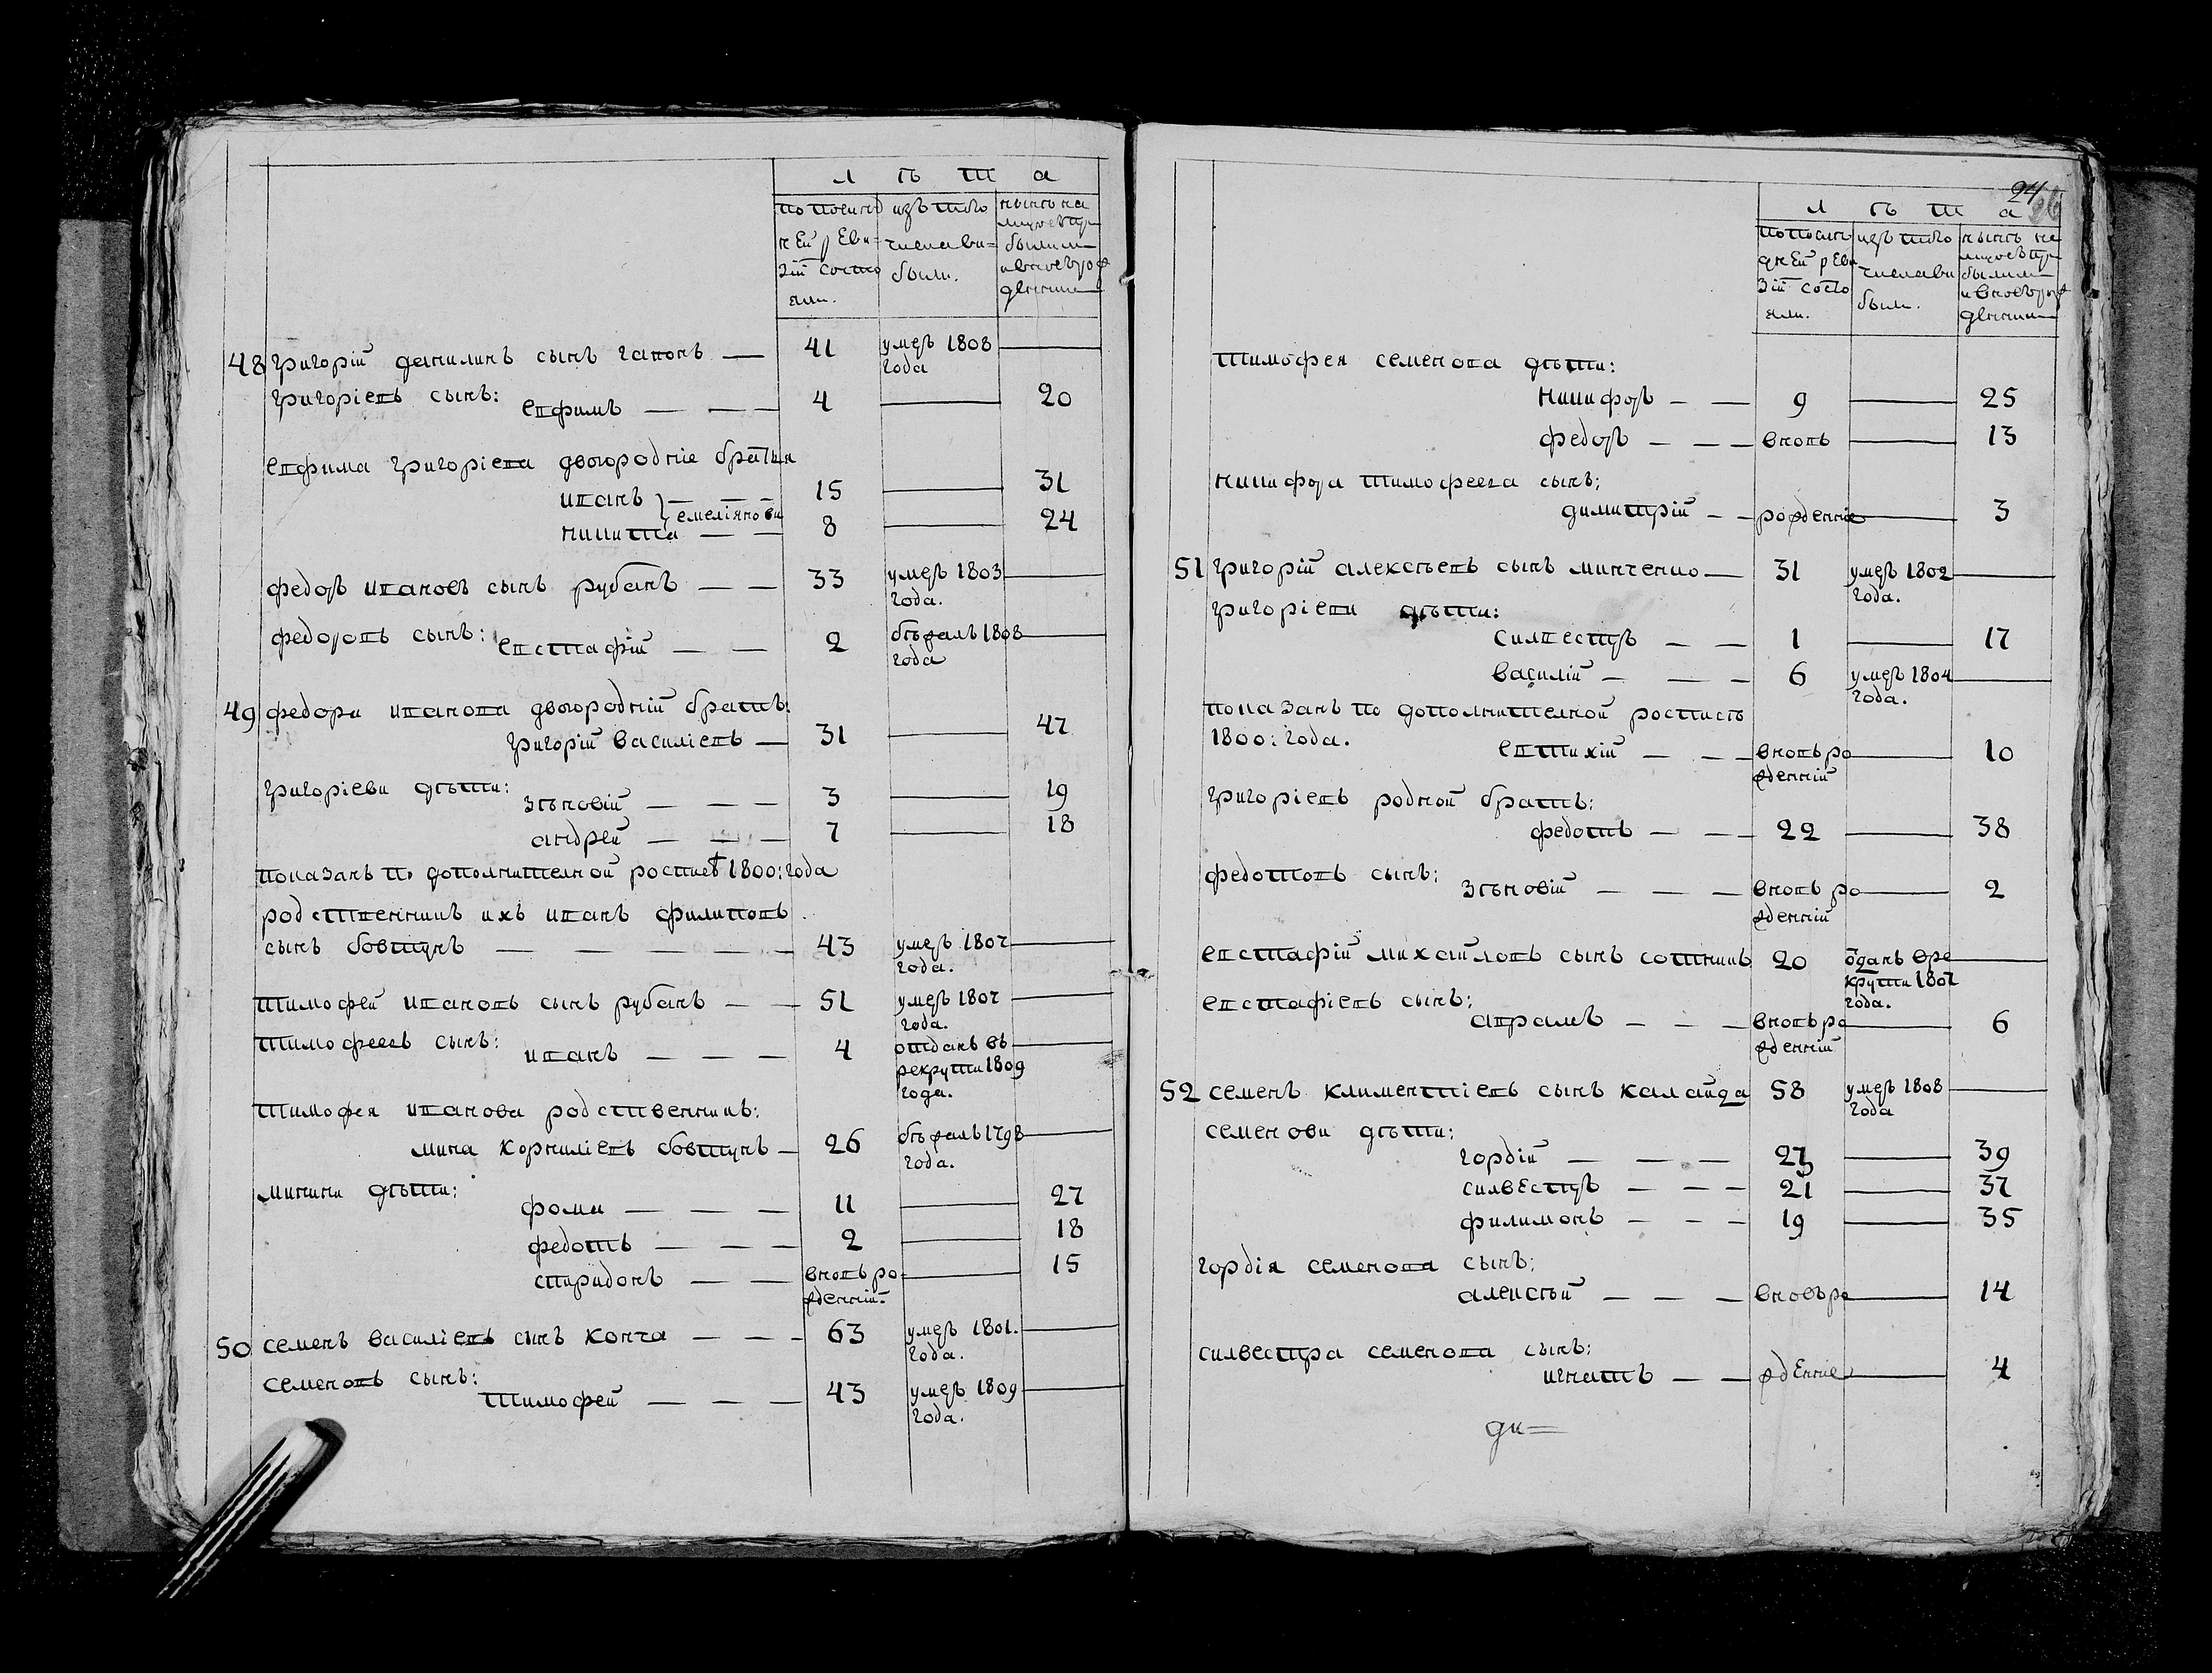 Л ѣ т а
по послѣд
ней реви=
зіи состо
яли.
изъ того
числа вы=
были.
нынѣ на
лицо съ при
былыми
и вновь рож
денными
48 Григорій Данилинъ сынъ Гапонъ — 41 умеръ 1808 года
Григоріевъ сынъ:
Евфимъ — — — 4 20
Евфима Григоріева двоюродніе братья
Иванъ } — — — 15 31
Емеліянови
Никита — — 8 24
Федоръ Ивановъ сынъ Рубанъ — — 33 умеръ 1803 года.
Федоровъ сынъ:
Евстафій — — 2 бѣжалъ 1808 года
49 Федора Иванова двоюродній братъ:
Григорій Василіевъ — 31 47
Григоріеви дѣти:
Зѣновій — — — 3 19
Андрей — — — 7 18
показанъ по дополнителной росписѣ 1800: года
родственникъ ихъ Иванъ Филиповъ
сынъ Бовтунъ — — — — — 43 умеръ 1807 года.
Тимофей Ивановъ сынъ Рубанъ — — 51 умеръ 1807 года.
Тимофеевъ сынъ:
Иванъ — — — 4 отданъ въ рекруты 1809 года.
Тимофея Иванова родственникъ:
Мина Корниліевъ Бовтунъ — 26 бѣжалъ 1798 года.
Минини дѣти:
Фома — — — 11 27
Федотъ — — — 2 18
Спиридонъ — — вновь рожденній. 15
50 Семенъ Василіевъ сынъ Конча — — — 63 умеръ 1801. года.
Семеновъ сынъ:
Тимофей — — — 43 умеръ 1809 года.
94
Л ѣ т а
по послѣ
дней реви
зіи состо
яли.
изъ того
числа вы
были.
нынѣ на
лицо съ при
былыми
и вновь рож
денными
Тимофея Семенова дѣти:
Никифоръ — — 9 25
Федоръ — — — вновь 13
Никифора Тимофеева сынъ:
Димитрій — — рожденніе 3
51 Григорій Алексѣевъ сынъ Минченко — 31 умеръ 1802 года.
Григоріеви дѣти:
Силвестръ — — 1 17
Василій — — — 6 умеръ 1804 года.
показанъ по дополнителной росписѣ
1800: года.
Евтихій — — — вновь рожденній 10
Григоріевъ родной братъ:
Федотъ — — 22 38
Федотовъ сынъ:
Зѣновій — — — вновь рожденній 2
Евстафій Михайловъ сынъ Сотникъ 20 отданъ в ре круты 1807 года.
Евстафіевъ сынъ:
Аврамъ — — — вновь рожденній 6
52 Семенъ Климентіевъ сынъ Калайда 58 умеръ 1808 года
Семенови дѣти:
Гордій — — — 23 39
Силвестръ — — — 21 37
Филимонъ — — — 19 35
Гордія Семенова сынъ:
Алексѣй — — — вновь ро 14
Силвестра Семенова сынъ:
Игнатъ — — жденніе 4